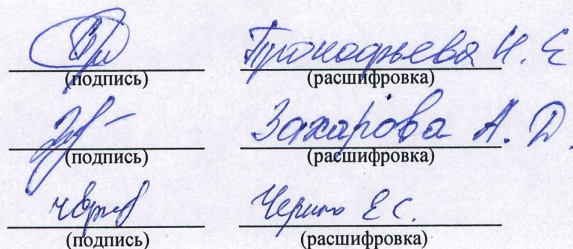 Прокофьева Н. Е
(подпись) (расшифровка)
Захарова А. Д.
(подпись) (расшифровка)
Е С.
(подпись) (расшифровка)